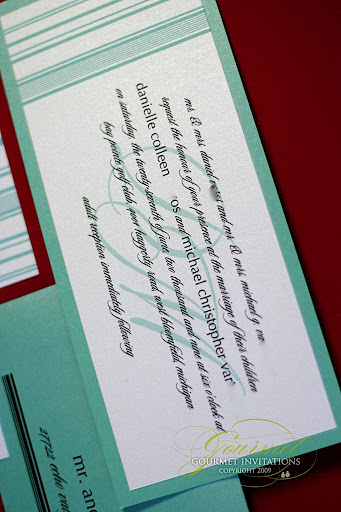 mr. & mrs. daniel and mr. & mrs. michael g. va
request the honour of your presence at the marriage of their children
danielle colleen os and michael christopher var
on saturday, the twenty-seventh of june two thousand and nine at six o'clock at
bay pointe golf club, 4001 haggerty road, west bloomfield, michigan
adult reception immediately following
mr. an
2772 echo
Gourmet
GOURMET INVITATIONS
COPYRIGHT 2009